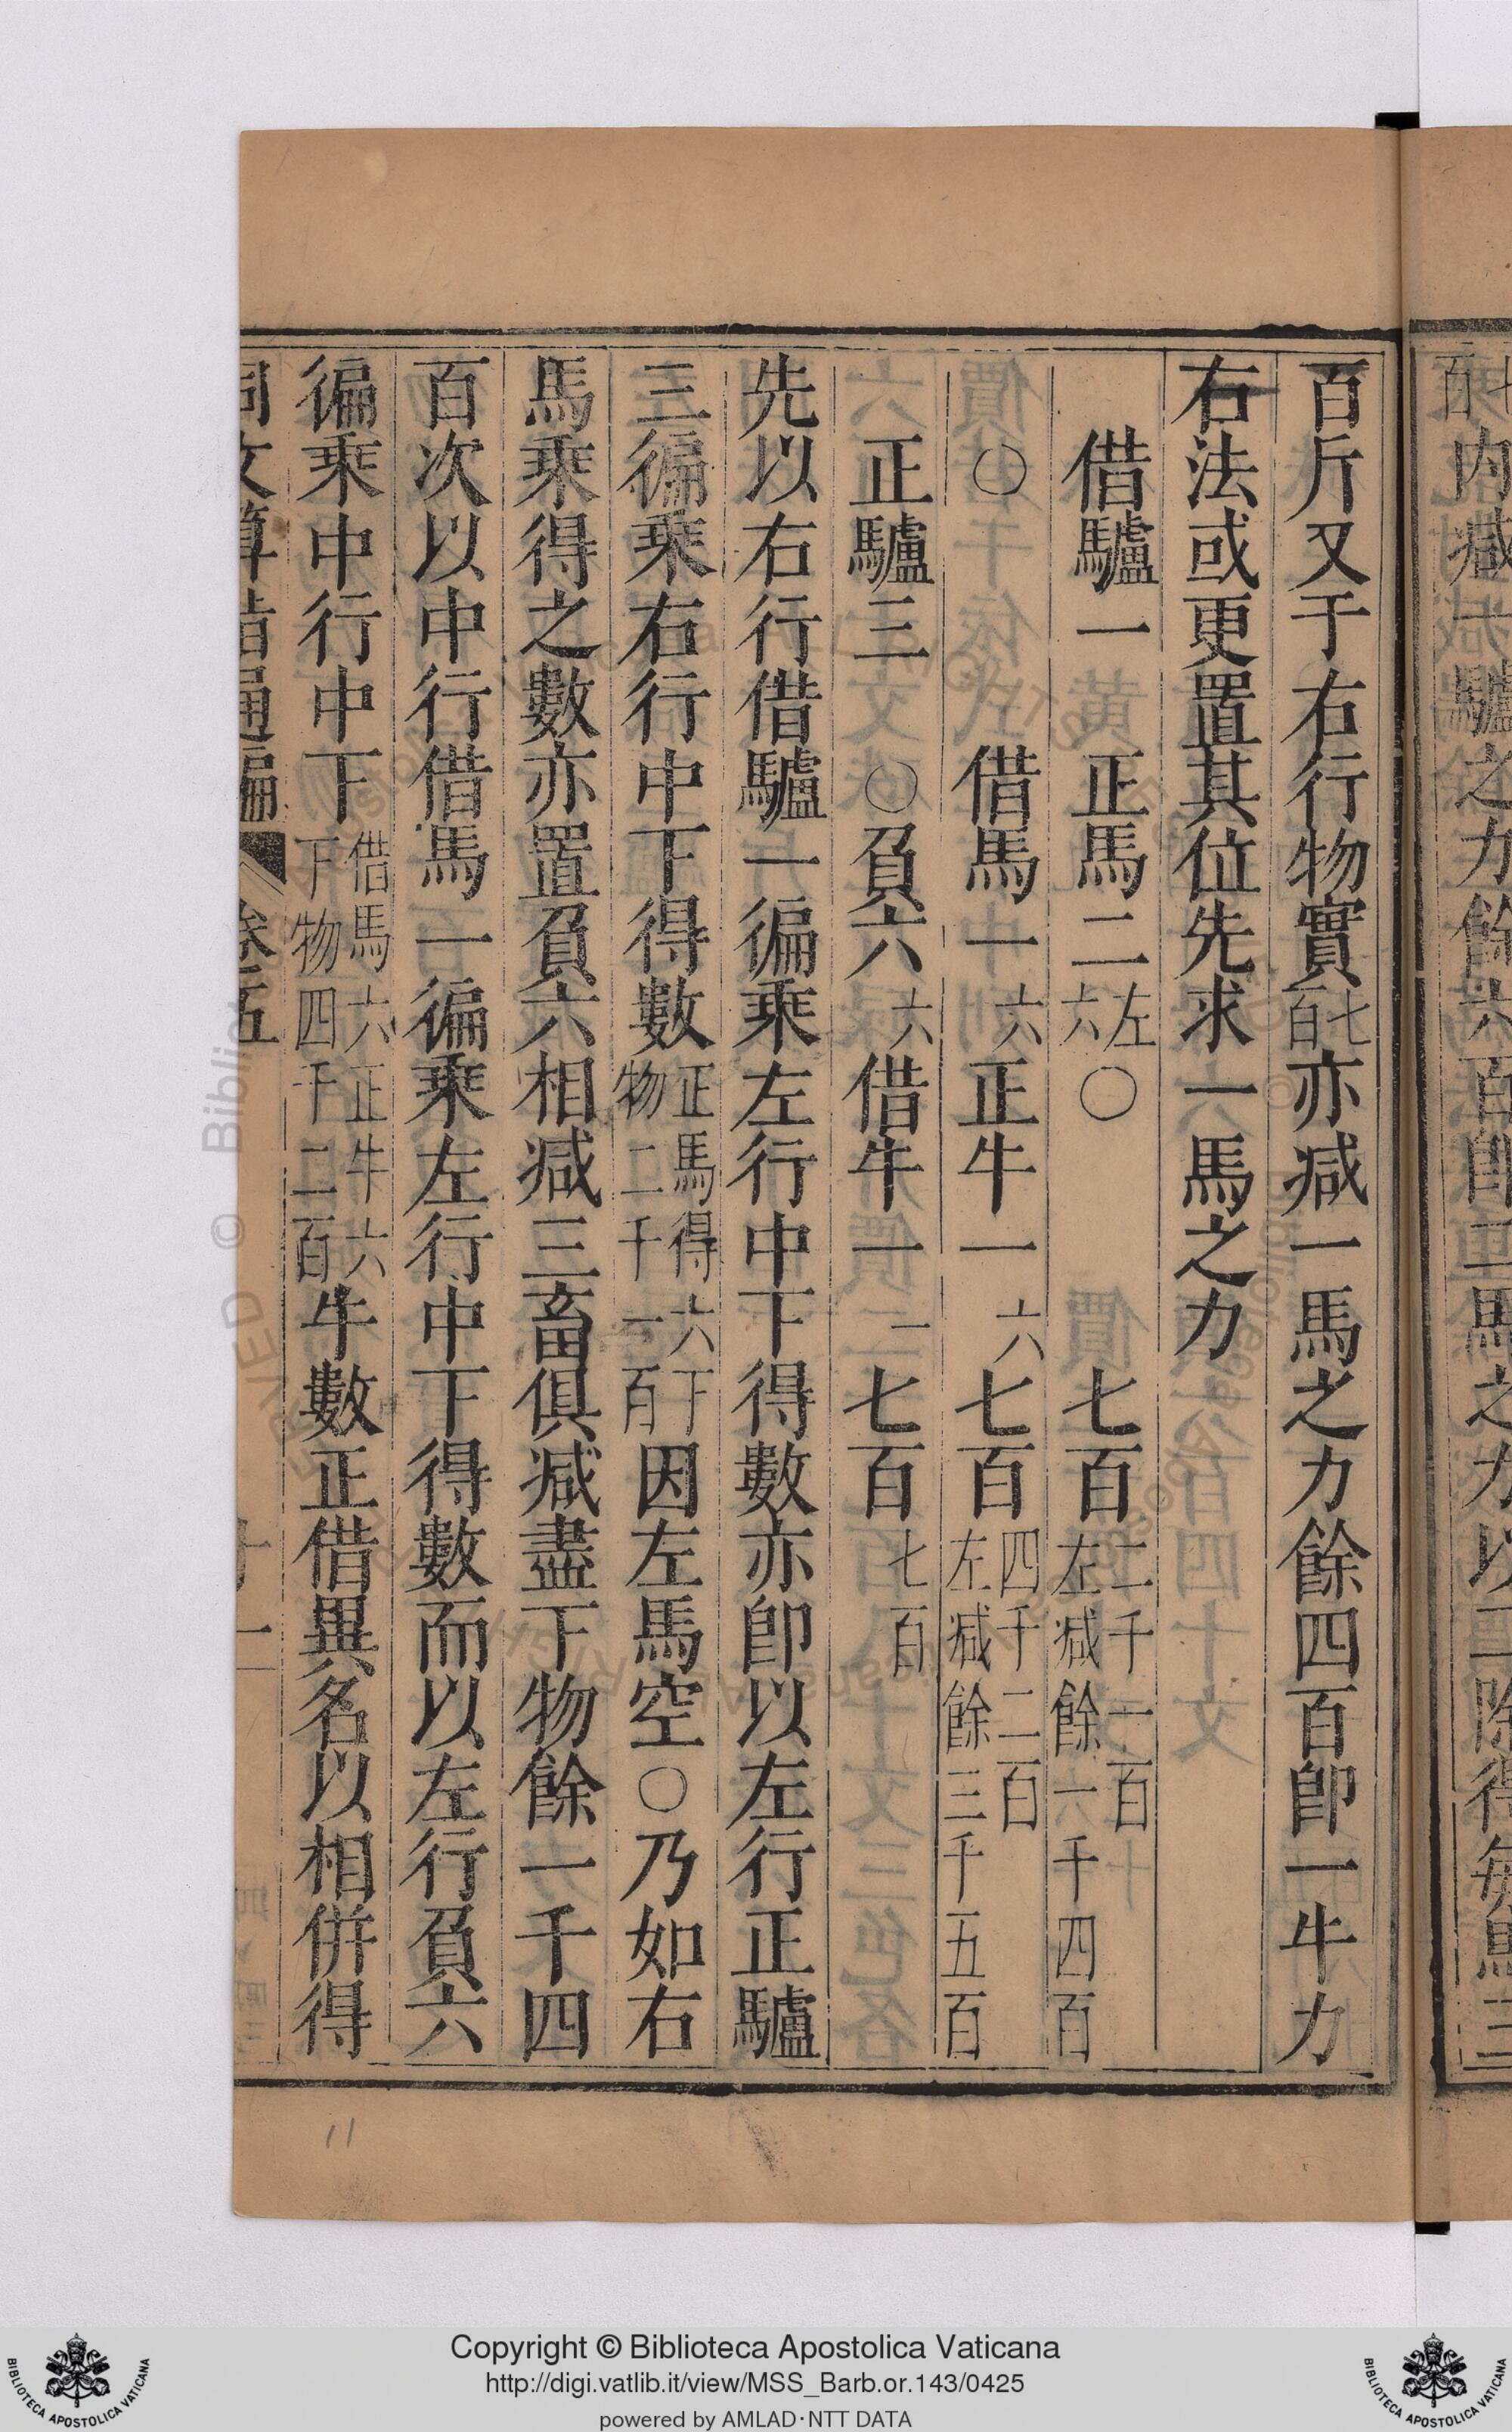 百斤又于右行物實七百亦减一馬之力餘四百卽一牛力
右法或更置其位先求一馬之力
借驢一 正馬二左六 〇 七百二千一百左减餘一千四百
〇 借馬一六 正牛一六 七百四千二百左减餘三千五百
正驢三 〇負六六 借牛一一 七百七百
先以右行借驢一徧乘左行中下得數亦卽以左行正驢
三徧乘右行中下得數正馬得六下物二千一百因左馬空〇乃如右
馬乘得之數亦置負六相减三畜俱减盡下物餘一千四
百次以中行借馬一徧乘左行中下得數而以左行負六
徧乘中行中下借馬六正牛六下物四千二百牛數正借異名以相併得
同文算指通編 卷五 十一
Copyright © Biblioteca Apostolica Vaticana
http://digi.vatlib.it/view/MSS_Barb.or.143/0425
powered by AMLAD·NTT DATA
BIBLIOTECA APOSTOLICA VATICANA
BIBLIOTECA APOSTOLICA VATICANA